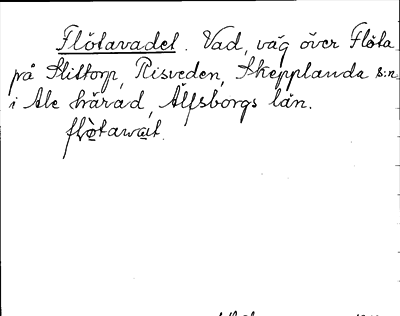 Flötavadet. Vad, väg över Flöta
på Slittorp, Risveden, Skepplanda s:n
i Ale härad, Älfsborgs län.
flö̀tawat.